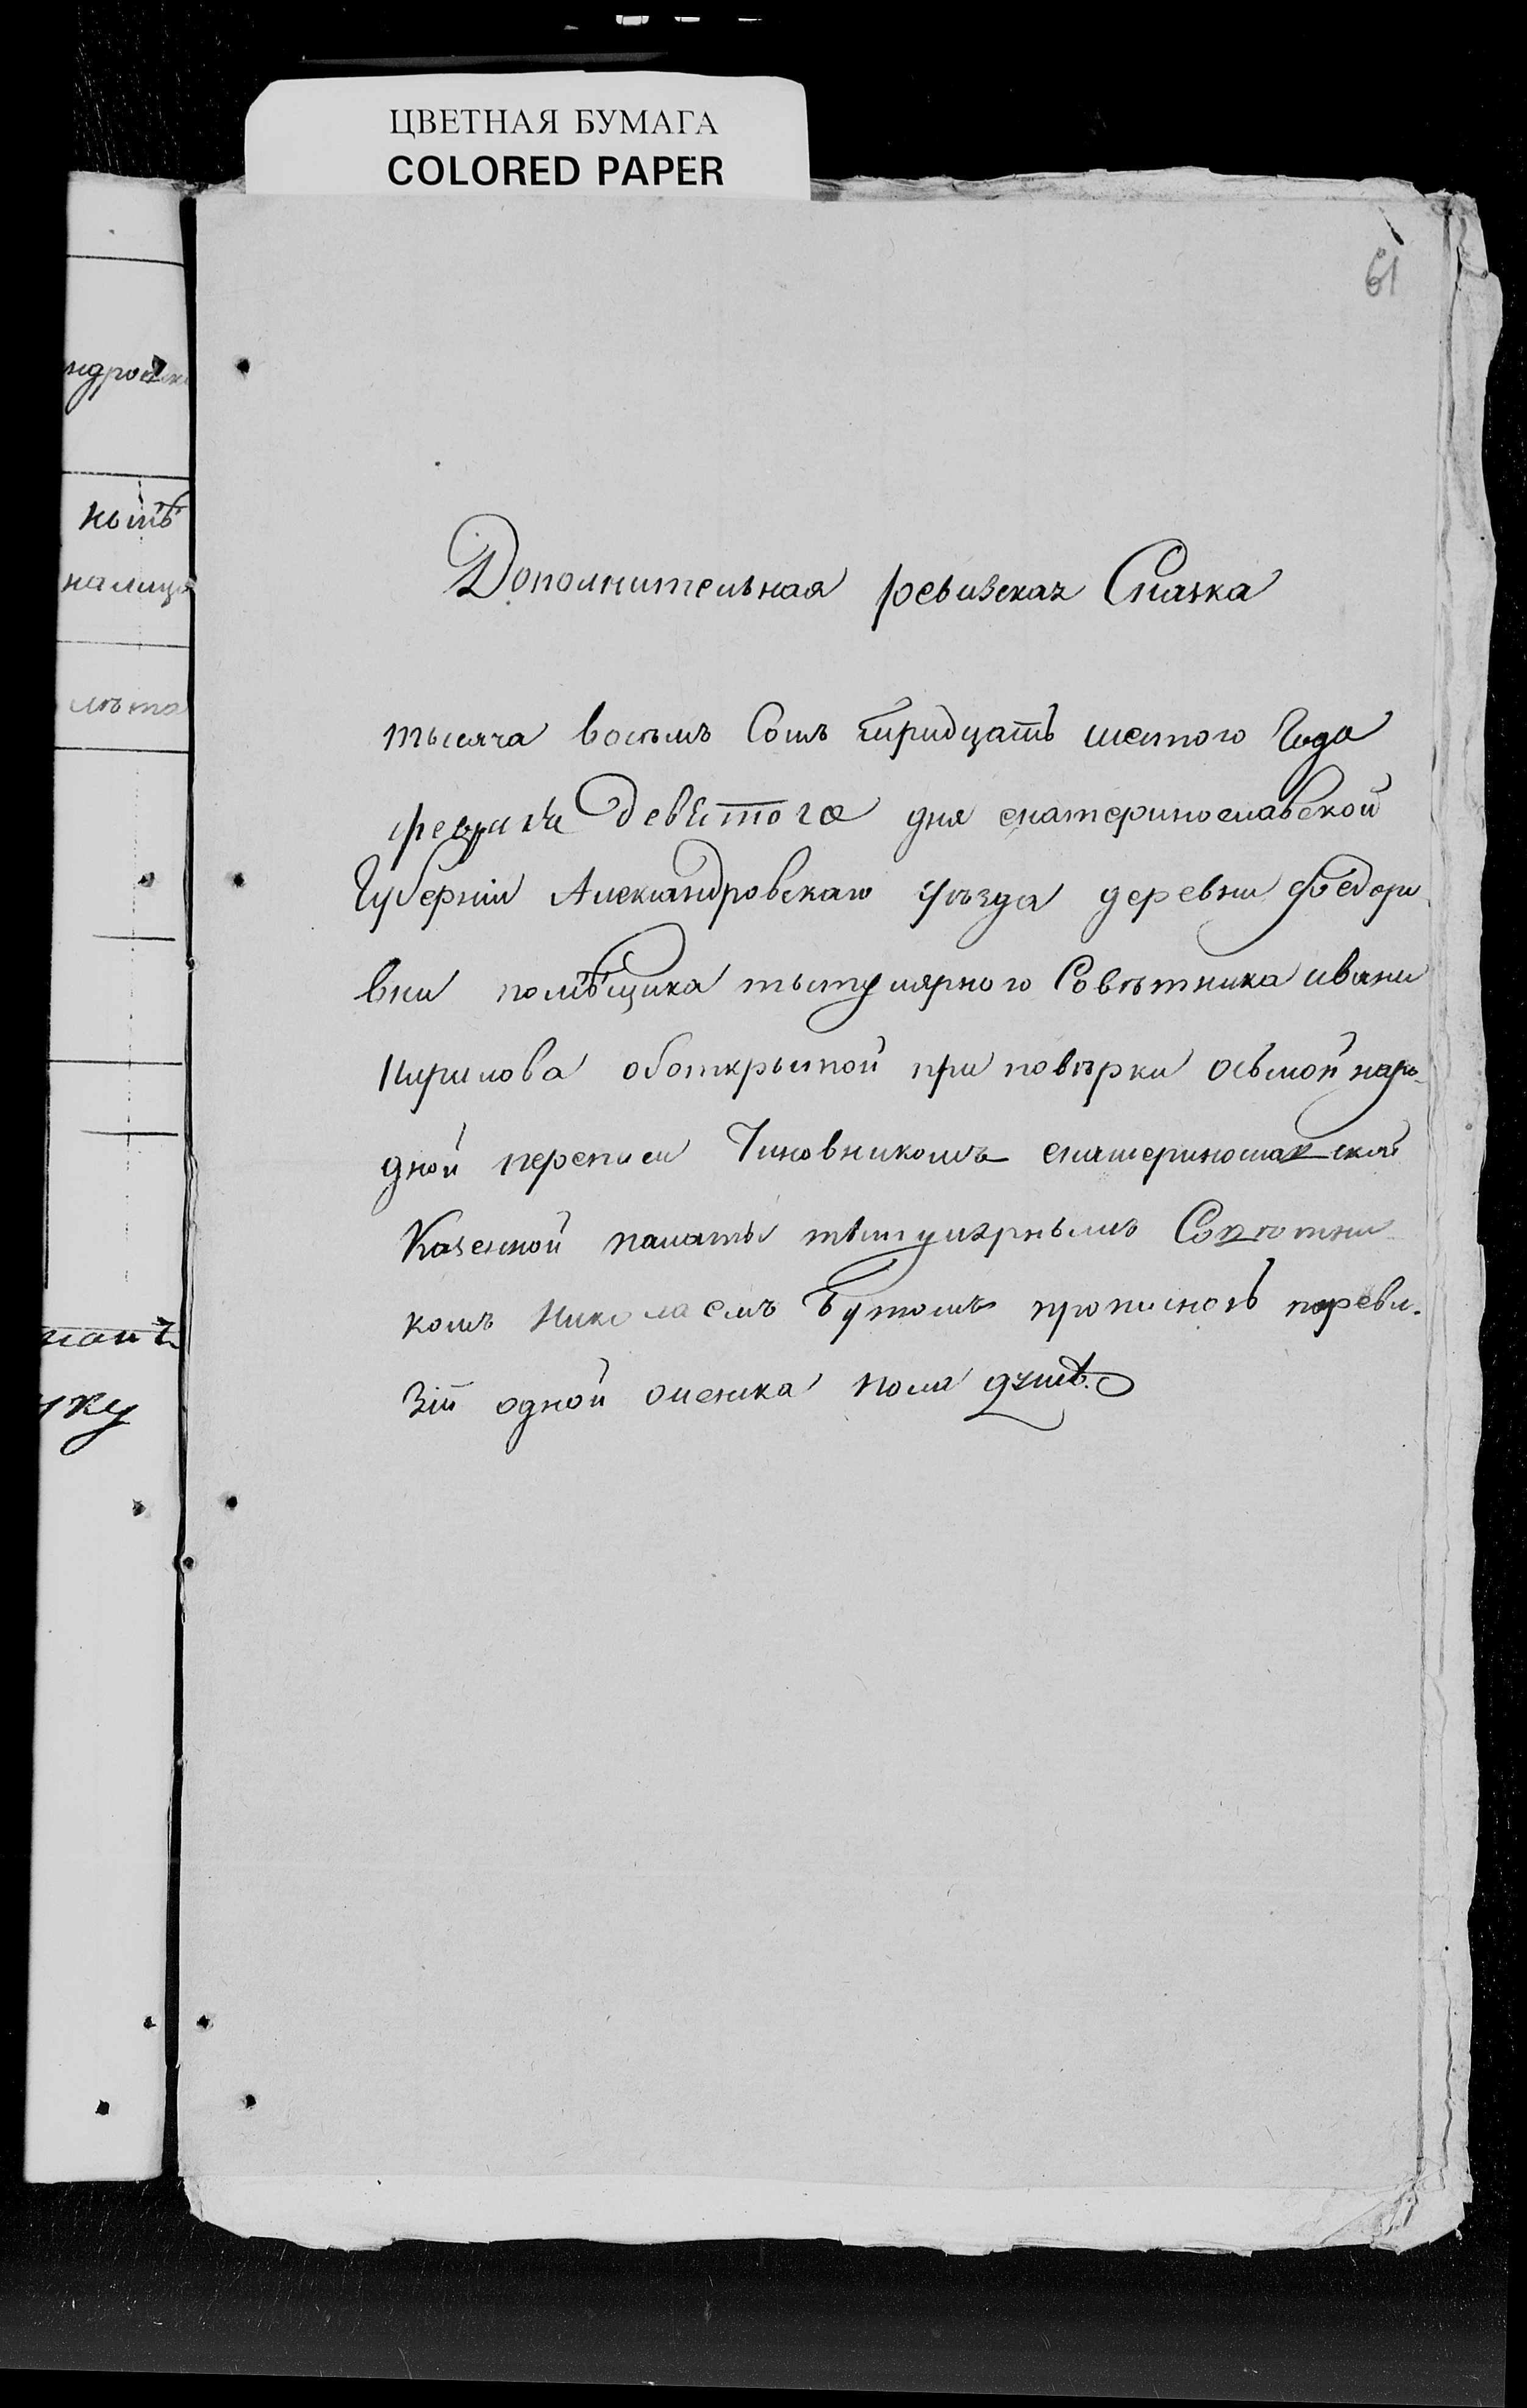 ЦВЕТНАЯ БУМАГА
COLORED PAPER
61
Дополнительная ревизская Сказка
тысяча восемъ Сотъ тридцать шестого Года
февраля девятого дня екатеринославской
Губернии Александровскаго уѣзда деревни Федоро
вки помѣщика тытулярного Совѣтника ивана
Кирилова оботкрытой при повѣрки осьмой наро
дной переписи Чиновникомъ екатеринославской
Казенной палаты тытулярнымъ Совѣтни
комъ Николаемъ прописной поревы.
зіи одной оженска пола души.
ндровск
нымъ
налицо
лѣта
ку